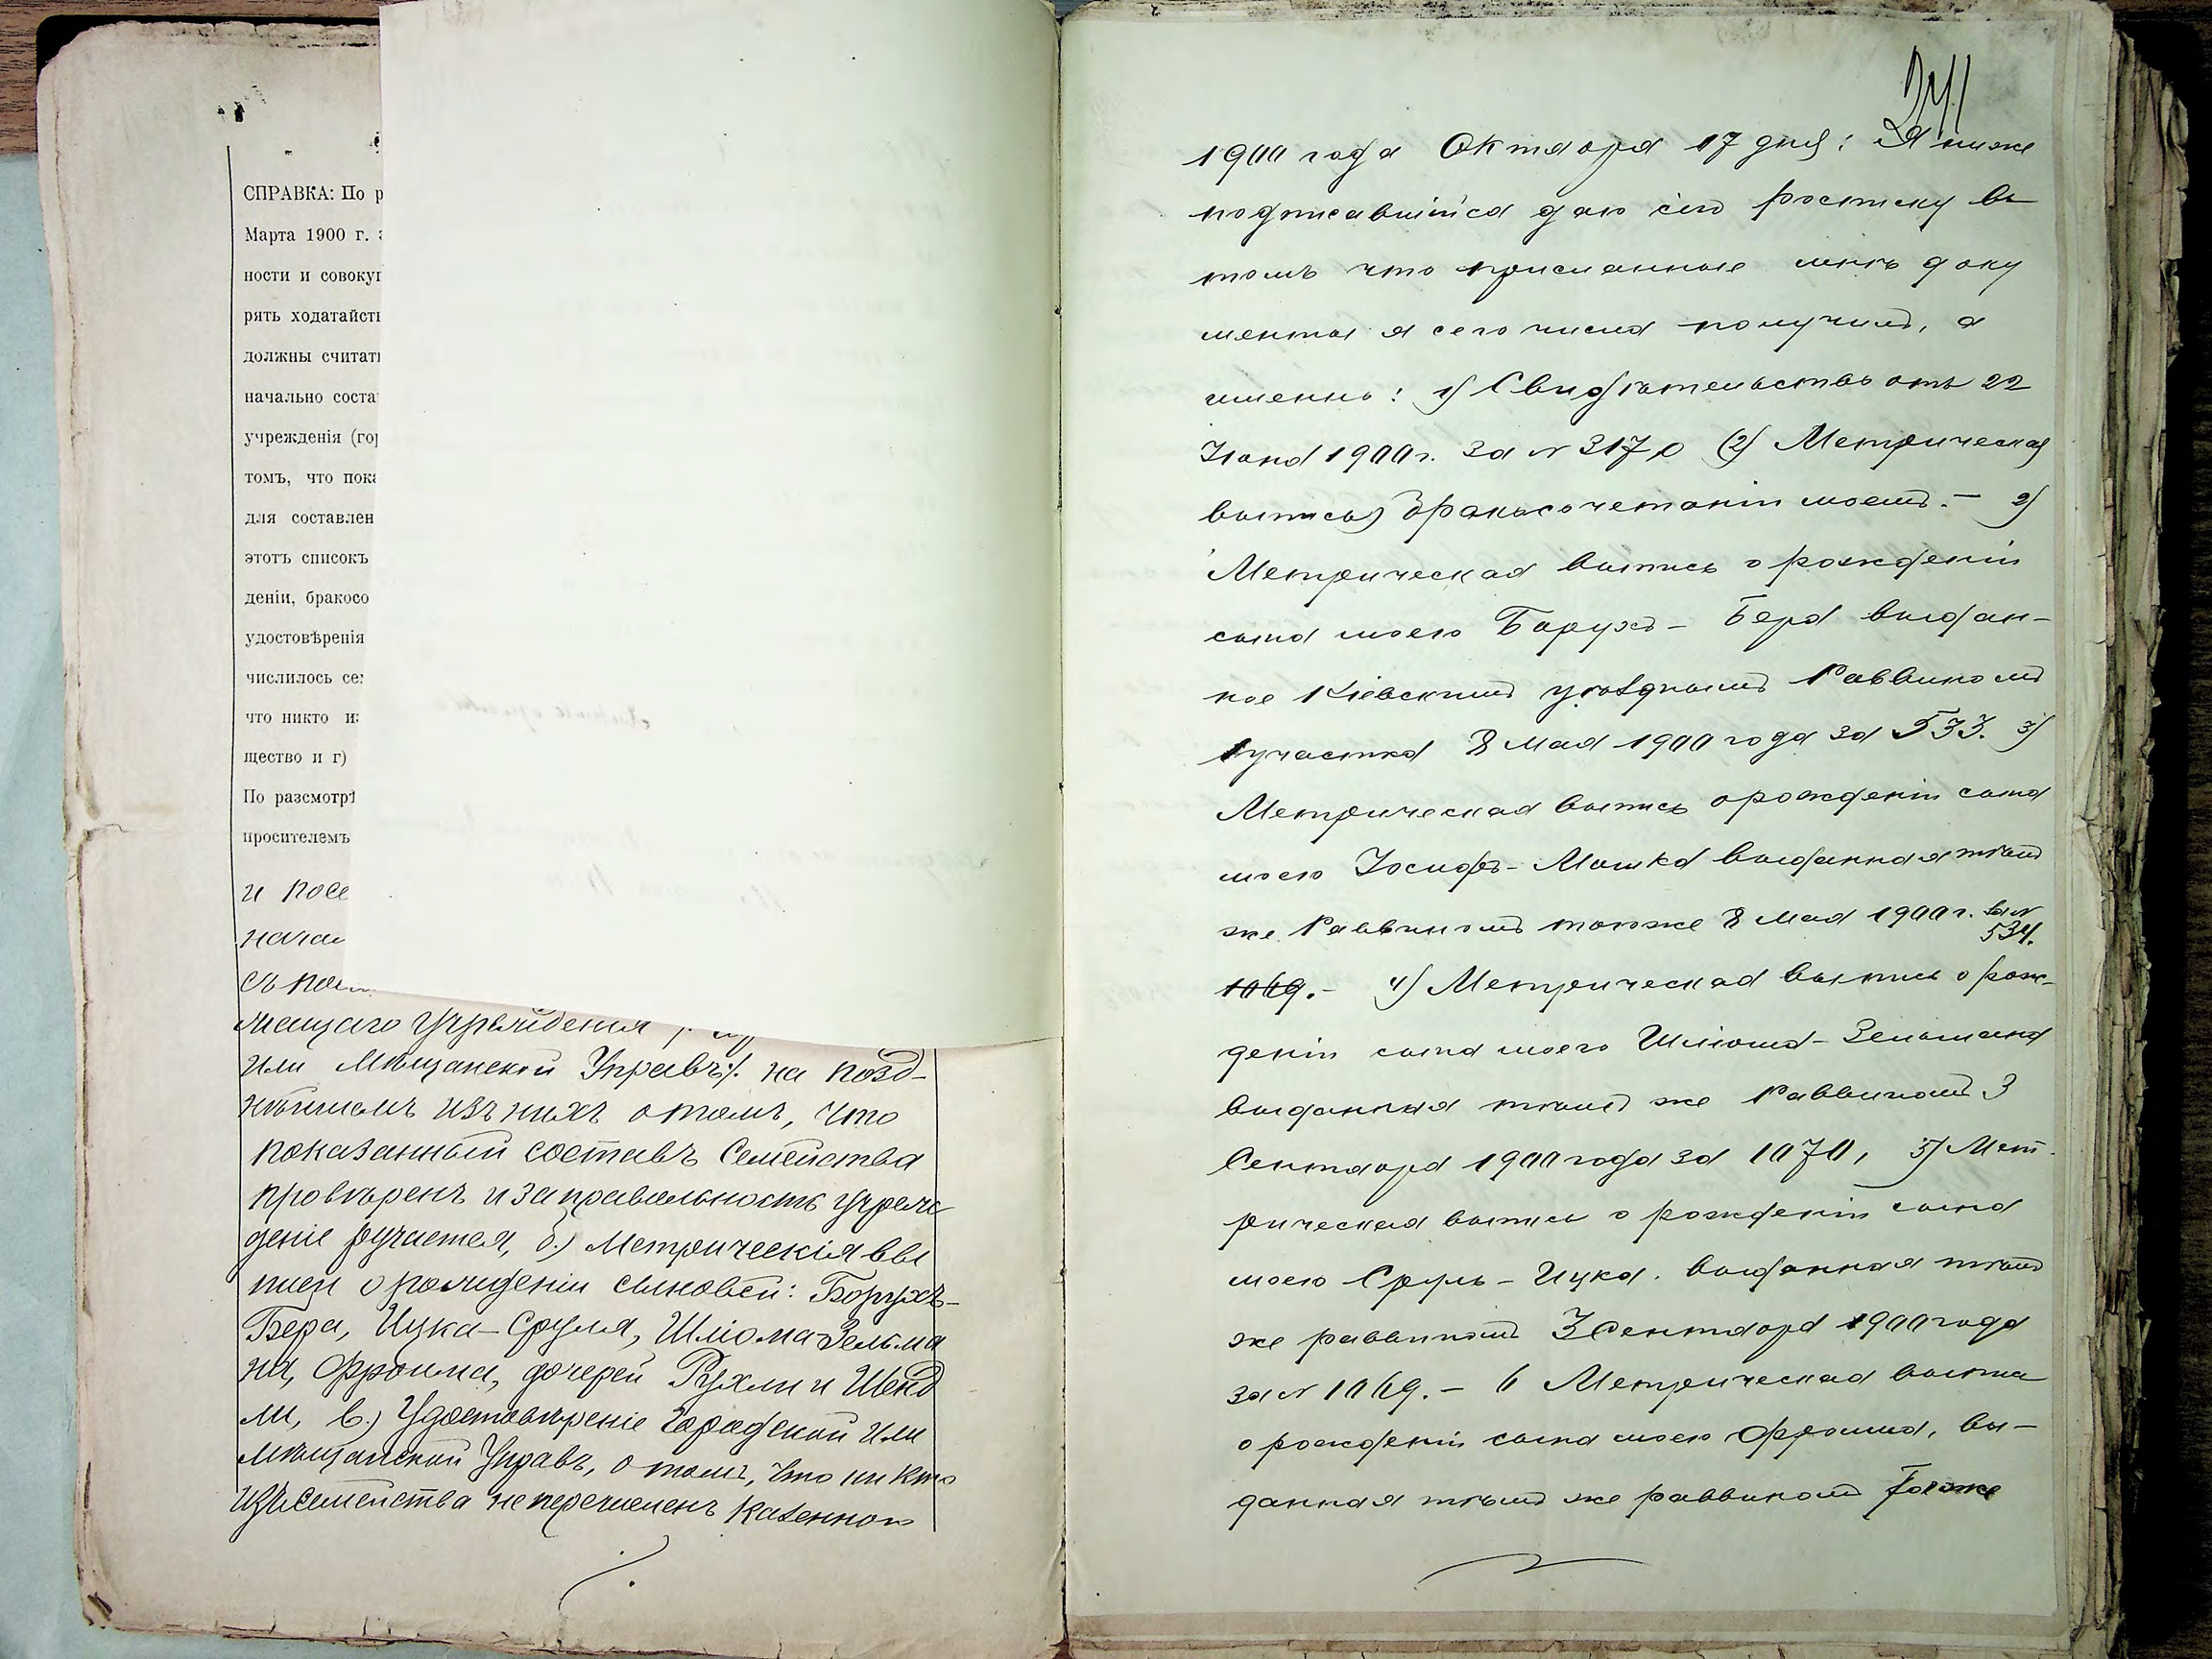 СПРАВКА: По р
Марта 1900 г. з
ности и совокуп
рять ходатайств
должны считать
начально соста
учрежденія (гор
томъ, что пока
для составлен
этотъ списокъ
деніи, бракосо
удостовѣренія
числилось сем
что никто из
щество и г)
По разсмотрѣ
просителемъ
и посе
начал
съ пош
жащаго Учрежденія
или Мѣщанской Управѣ/. на позд-
нѣйшемъ изъ нихъ о томъ, что
показанный составъ Семейства
провѣренъ и за правильность учреж
деніе ручается, б.) Метрическія вы
писи о рожденіи сыновей: Борухъ-
Бера, Ицка-Сруля, Шліома-Зельма
на, Фроима, дочерей Рухли и Шенд
ли, в.) Удостовѣреніе Городской или
Мѣщанской Управѣ, о томъ, что ни кто
изъ Семейства не перечисленъ казенною
241
1900 года Октября 17 дня: Я ниже
подписавшійся даю сію росписку въ
томъ что присланные мнѣ доку
менты я сего числа получилъ, а
именно: 1) Свидѣтельство отъ 22
Іюня 1900 г. за № 3170 (2) Метрическая
выпись) бракосочетаніи моемъ. - 2)
Метрическая выпись о рожденіи
сына моего Борухъ- Бера выдан-
ное Кіевскимъ уѣзднымъ Раввиномъ
1 участка 8 Мая 1900 года за 533. 3)
Метрическая выпись о рожденіи сына
моего Іосифъ-Мошка выданная тѣмъ
же Раввиномъ тоже 8 Мая 1900 г. за №
534.
1069. - 4) Метрическая выпись о рож-
деніи сына моего Шліома-Зельмана
выданная тѣмъ же Раввиномъ 3
Сентября 1900 года за 1070, 5) Мет-
рическая выпись о рожденіи сына
моего Сруль-Ицка. выданная тѣмъ
же раввиномъ 3 Сентября 1900 года
за № 1069. - 6 Метрическая выпись
о рожденіи сына моего Фроима, вы-
данная тѣмъ же раввиномъ тоже